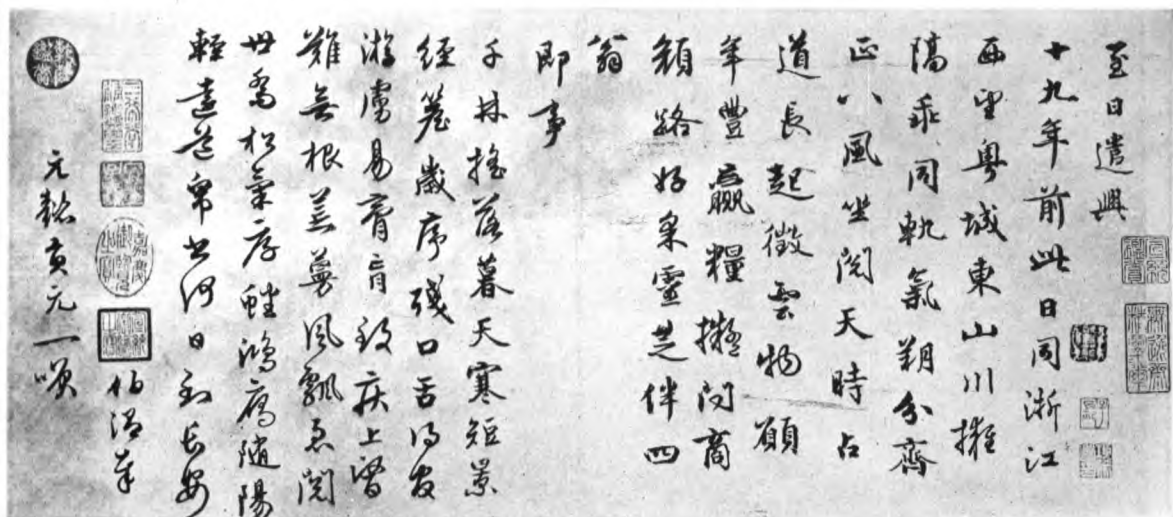 至日遣興
十九年前此日同浙江
西望粵城東山川擁
隔乖同軌氣朔分齊
正八風坐閱天時占
道長起徵雲物願
年豐贏糧擬問商
顏路好采靈芝伴四
翁
即事
千林搖落暮天寒短景
經簷歲序殘口舌得官
游虜易膏肓致疾上醫
難無根蔓風飄急閱
世喬松氣厚蟠鴻鴈隨陽
輕遠道帛書何日到長安
伯溫奉
元懿貢元一笑